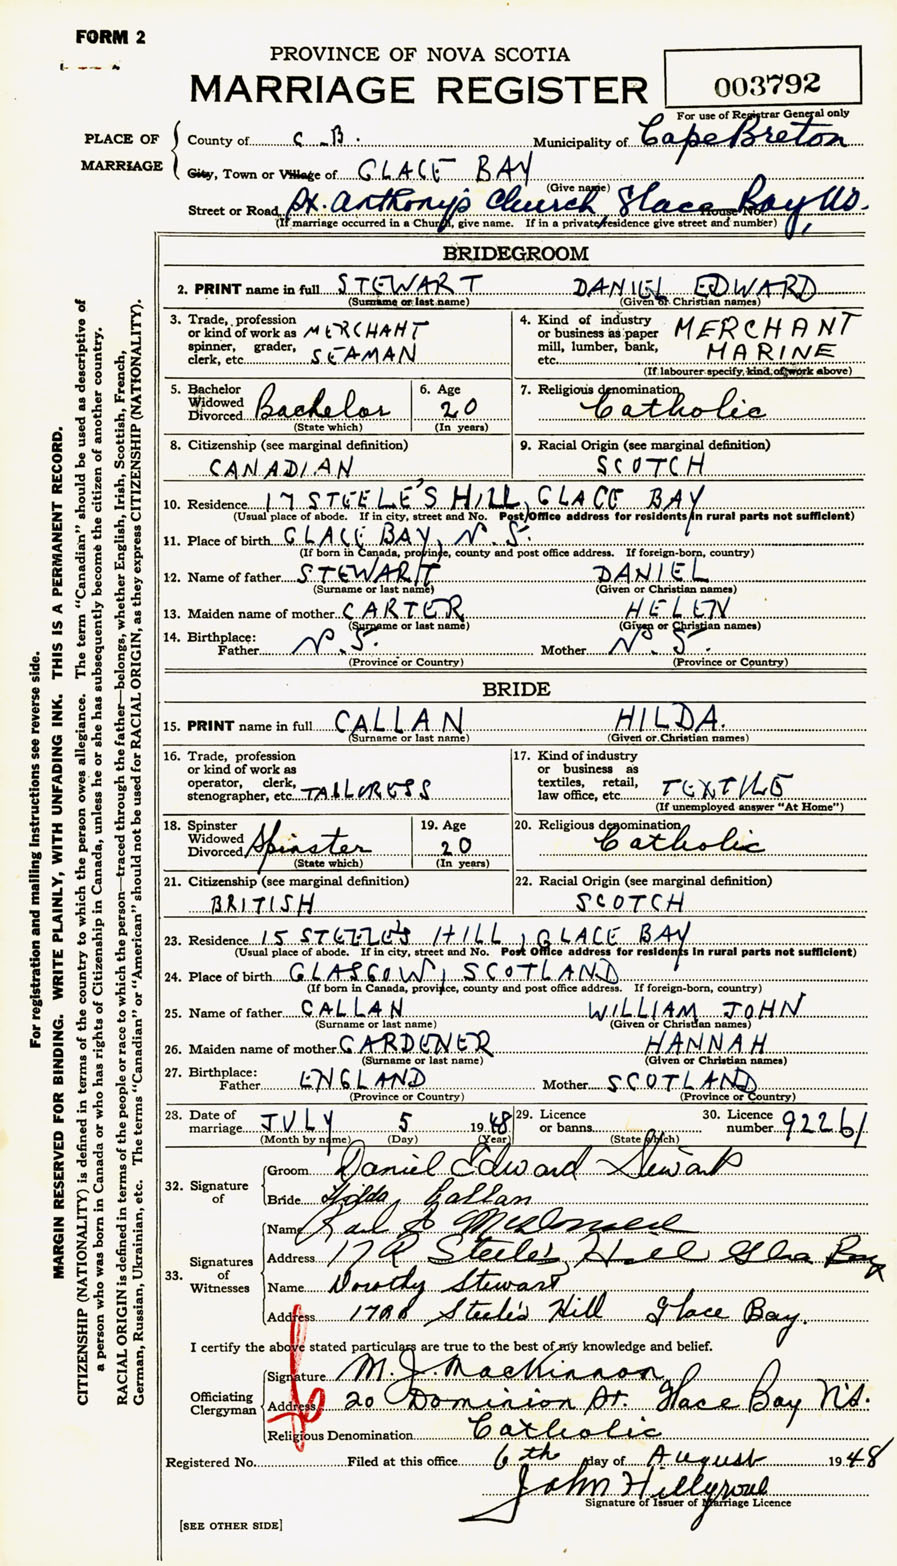 FORM 2
PROVINCE OF NOVA SCOTIA
MARRIAGE REGISTER
003792
For use of Registrar General only
PLACE OF MARRIAGE
County of C.B. Municipality of Cape Breton
City, Town or Village of GLACE BAY
(Give name)
Street or Road St. Anthony's Church Glace Bay, NS.
House No.
(If marriage occurred in a Church, give name. If in a private residence give street and number)
BRIDEGROOM
2. PRINT name in full STEWART DANIEL EDWARD
(Surname or last name) (Given or Christian names)
3. Trade, profession or kind of work as spinner, grader, clerk, etc. MERCHANT SEAMAN
4. Kind of industry or business as paper mill, lumber, bank, etc. MERCHANT MARINE
(If labourer specify, kind of work above)
5. Bachelor Widowed Divorced Bachelor
(State which)
6. Age 20
(In years)
7. Religious denomination Catholic
8. Citizenship (see marginal definition) CANADIAN
9. Racial Origin (see marginal definition) SCOTCH
10. Residence 17 STEELE'S HILL, GLACE BAY
(Usual place of abode. If in city, street and No. Post Office address for residents in rural parts not sufficient)
11. Place of birth GLACE BAY, N.S.
(If born in Canada, province, county and post office address. If foreign-born, country)
12. Name of father STEWART DANIEL
(Surname or last name) (Given or Christian names)
13. Maiden name of mother CARTER HELEN
(Surname or last name) (Given or Christian names)
14. Birthplace:
Father N.S. Mother N.S.
(Province or Country) (Province or Country)
BRIDE
15. PRINT name in full CALLAN HILDA.
(Surname or last name) (Given or Christian names)
16. Trade, profession or kind of work as operator, clerk, stenographer, etc. TAILORESS
17. Kind of industry or business as textiles, retail, law office, etc. TEXTILE
(If unemployed answer "At Home")
18. Spinster Widowed Divorced Spinster
(State which)
19. Age 20
(In years)
20. Religious denomination Catholic
21. Citizenship (see marginal definition) BRITISH
22. Racial Origin (see marginal definition) SCOTCH
23. Residence 15 STEELE'S HILL, GLACE BAY
(Usual place of abode. If in city, street and No. Post Office address for residents in rural parts not sufficient)
24. Place of birth GLASGOW, SCOTLAND
(If born in Canada, province, county and post office address. If foreign-born, country)
25. Name of father CALLAN WILLIAM JOHN
(Surname or last name) (Given or Christian names)
26. Maiden name of mother GARDENER HANNAH
(Surname or last name) (Given or Christian names)
27. Birthplace:
Father ENGLAND Mother SCOTLAND
(Province or Country) (Province or Country)
28. Date of marriage JULY 5 1948
(Month by name) (Day) (Year)
29. Licence or banns
(State which)
30. Licence number 92261
32. Signature of
Groom Daniel Edward Stewart
Bride Hilda Callan
33. Signatures of Witnesses
Name McDonald
Address Steele's Hill Glace Bay
Name Dorothy Stewart
Address Steele's Hill Glace Bay.
I certify the above stated particulars are true to the best of my knowledge and belief.
Officiating Clergyman
Signature M. J. MacKinnon
Address 20 Dominion St. Glace Bay N.S.
Religious Denomination Catholic
Registered No. Filed at this office 6th day of August 1948
John
Signature of Issuer of Marriage Licence
[SEE OTHER SIDE]
For registration and mailing instructions see reverse side.
MARGIN RESERVED FOR BINDING. WRITE PLAINLY, WITH UNFADING INK. THIS IS A PERMANENT RECORD.
CITIZENSHIP (NATIONALITY) is defined in terms of the country to which the person owes allegiance. The term "Canadian" should be used as descriptive of
a person who was born in Canada or who has rights of Citizenship in Canada, unless he or she has subsequently become the citizen of another country.
RACIAL ORIGIN is defined in terms of the people or race to which the person—traced through the father—belongs, whether English, Irish, Scottish, French,
German, Russian, Ukrainian, etc. The terms "Canadian" or "American" should not be used for RACIAL ORIGIN, as they express CITIZENSHIP (NATIONALITY).